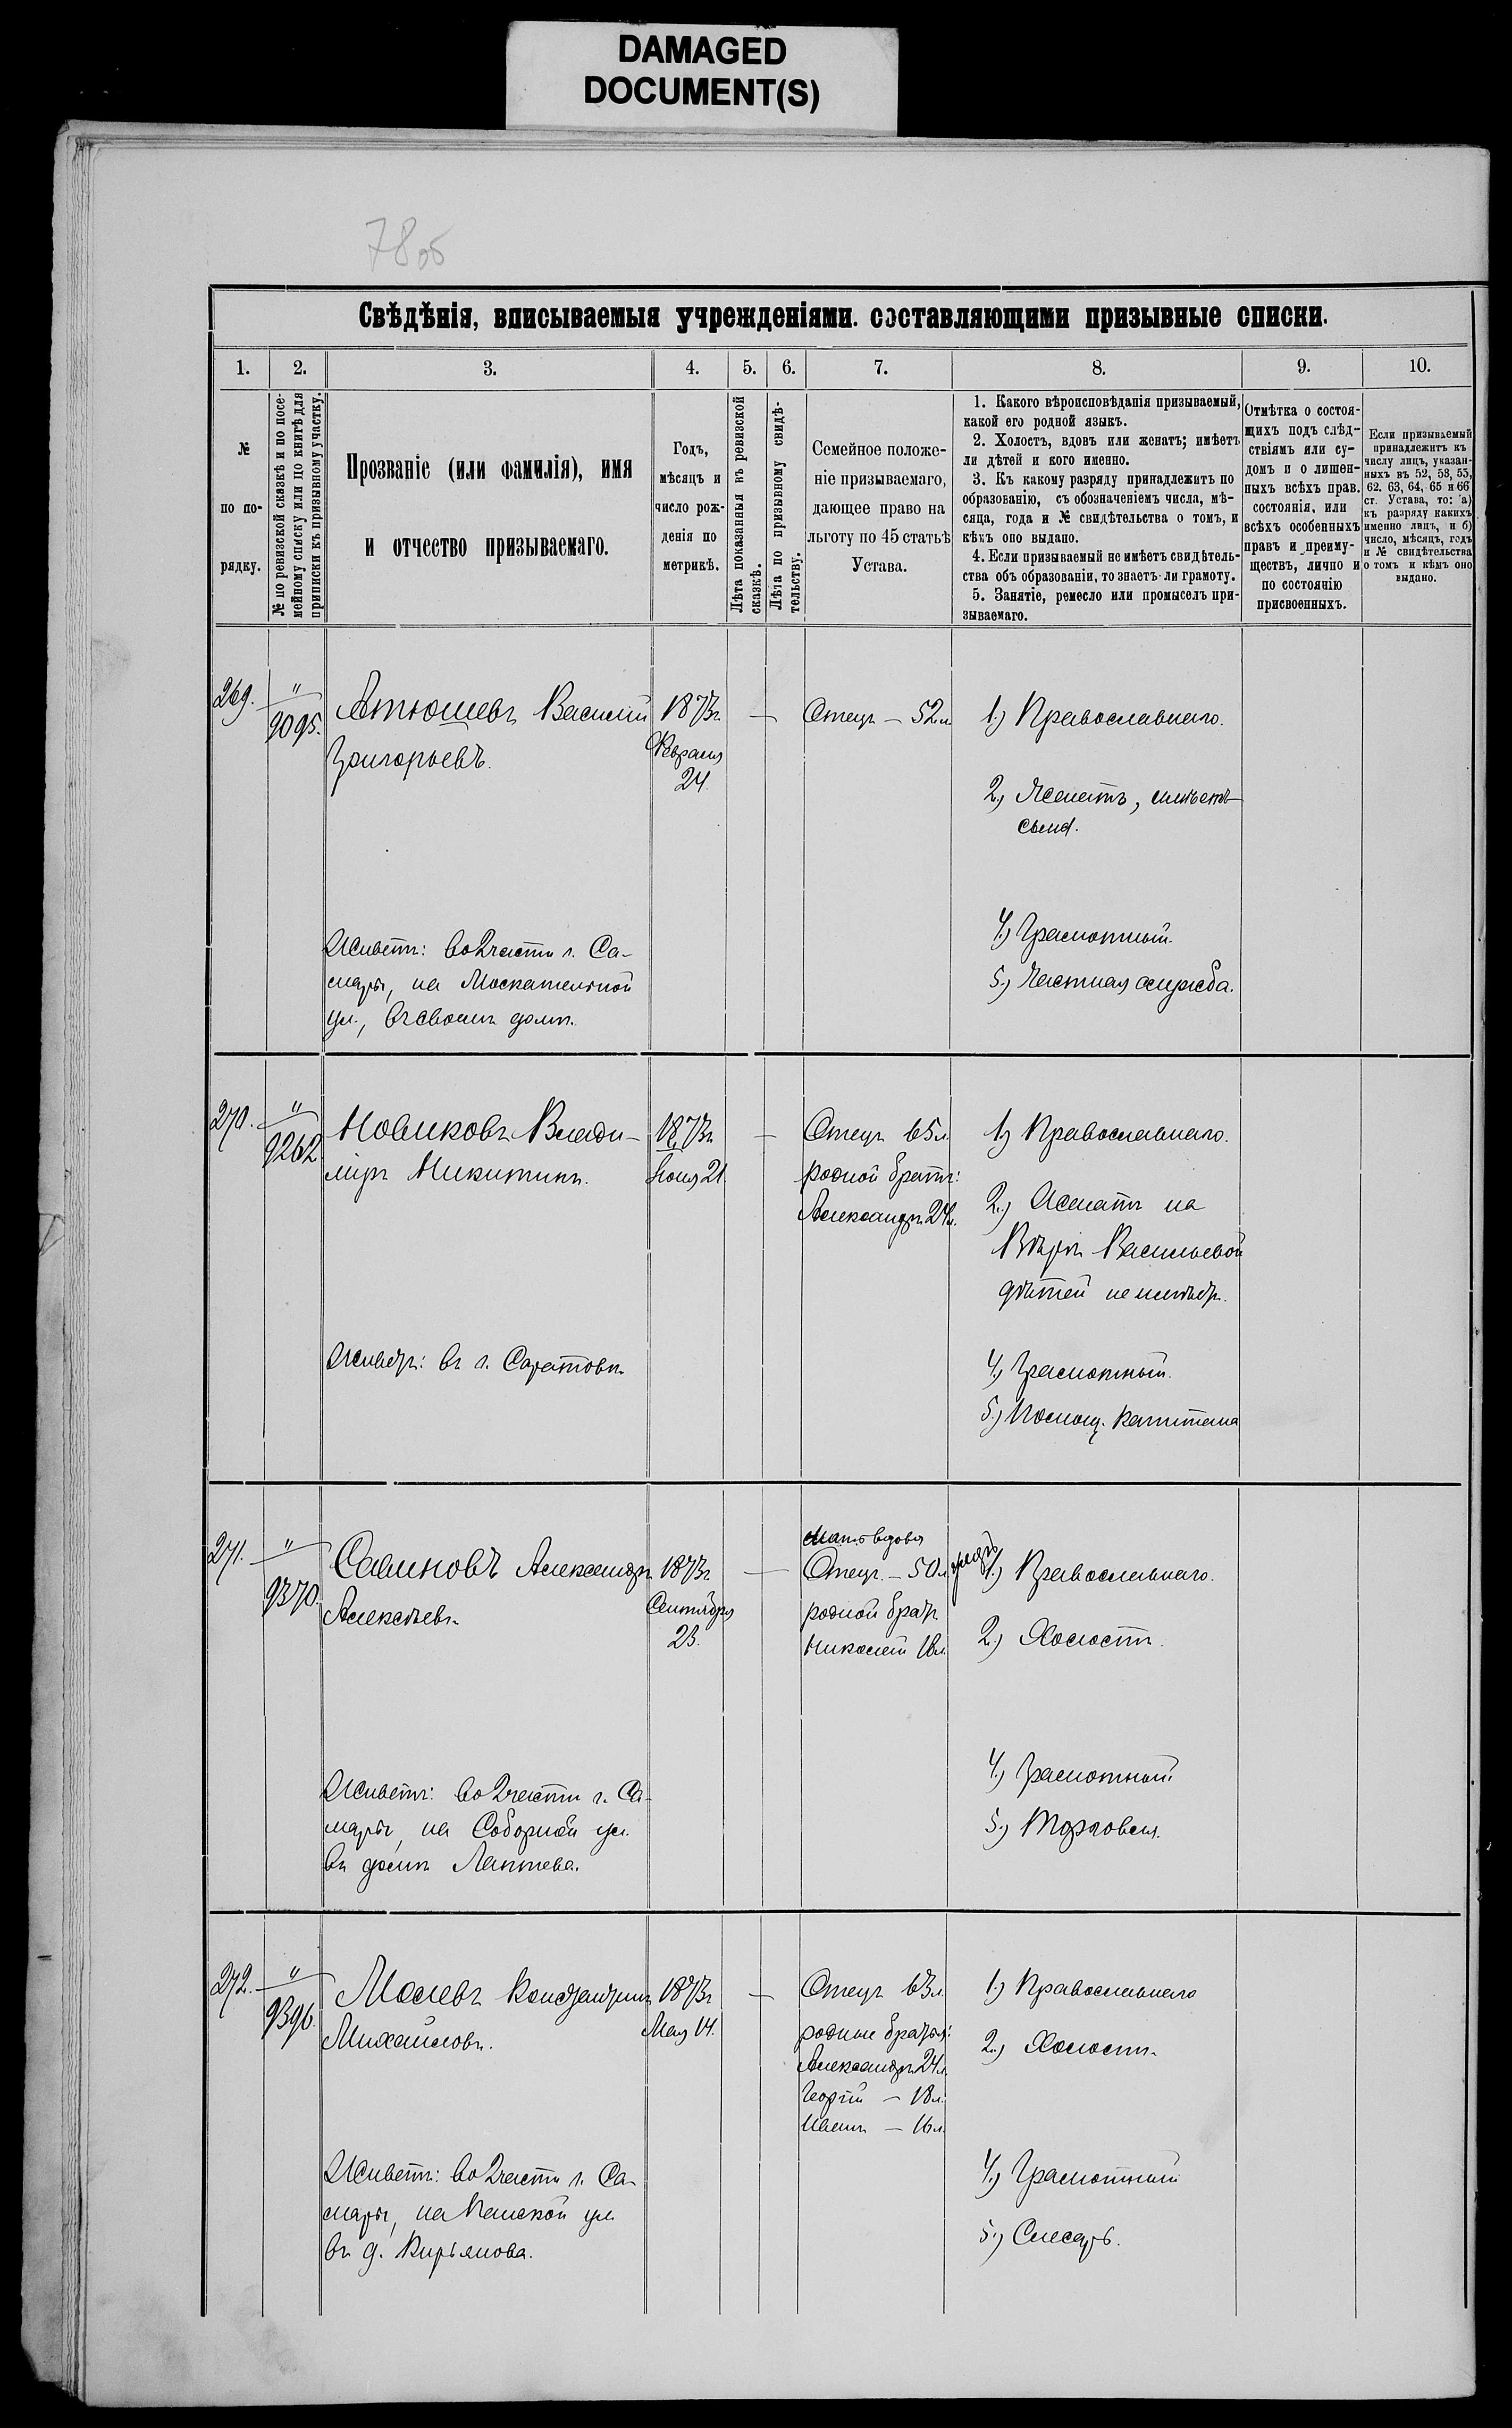 DAMAGED
DOCUMENT(S)
78об
Свѣдѣнія, вписываемыя учрежденіями, составляющими призывные списки.
1. 2. 3. 4. 5. 6. 7. 8. 9. 10.
№
по по-
рядку.
№ по ревизской сказкѣ и по посе-
мейному списку или по книгѣ для
приписки къ призывному участку.
Прозваніе (или фамилія), имя
и отчество призываемаго.
Годъ,
мѣсяцъ и
число рож-
денія по
метрикѣ.
Лѣта показанныя въ ревизской
сказкѣ.
Лѣта по призывному свидѣ-
тельству.
Семейное положе-
ніе призываемаго,
дающее право на
льготу по 45 статьѣ
Устава.
1. Какого вѣроисповѣданія призываемый,
какой его родной языкъ.
2. Холостъ, вдовъ или женатъ; имѣетъ
ли дѣтей и кого именно.
3. Къ какому разряду принадлежитъ по
образованію, съ обозначеніемъ числа, мѣ-
сяца, года и № свидѣтельства о томъ, и
кѣмъ оно выдано.
4. Если призываемый не имѣетъ свидѣтель-
ства объ образованіи, то знаетъ-ли грамоту.
5. Занятіе, ремесло или промыселъ при-
зываемаго.
Отмѣтка о состоя-
щихъ подъ слѣд-
ствіямъ или су-
домъ и о лишен-
ныхъ всѣхъ прав.
состоянія, или
всѣхъ особенныхъ
правъ и преиму-
ществъ, лично и
по состоянію
присвоенныхъ.
Если призываемый
принадлежитъ къ
числу лицъ, указан-
ныхъ въ 52, 53, 55,
62. 63, 64, 65 и 66
ст. Устава, то: а)
къ разряду какихъ
именно лицъ, и б)
число, мѣсяцъ, годъ
и № свидѣтельства
о томъ и кѣмъ оно
выдано.
269.
"
9095.
Атюшевъ Василій
Григорьевъ.
1873г.
Февраля
24.
—
Отецъ — 52л
1.) Православнаго.
2.) Женатъ, имѣетъ
сына.
4.) Грамотный.
5.) Частная служба.
Живетъ: во 2 части г. Са-
мары, на Москательной
ул., въ своемъ домѣ.
270.
"
9262
Новиковъ Влади-
міръ Никитинъ.
1873г.
Іюля 21
—
Отецъ 65л.
родной братъ:
Александръ 24л.
1.) Православнаго.
2.) Женатъ на
Вѣрѣ Васильевой
дѣтей не имѣетъ.
4.) Грамотный.
5.) Помощ. Капитана
Живетъ: въ г. Саратовѣ.
271.
"
9370.
Савиновъ Александръ
Алексѣевъ.
1873г.
Сентября
23.
—
Мать вдова
Отецъ — 50л. умеръ
родной братъ
Николай 18л.
1.) Православнаго.
2.) Холостъ.
4.) Грамотный
5.) Торговля.
Живетъ: во 2 части г. Са-
мары, на Соборной ул.
въ домѣ Лаптева.
272.
"
9396.
Молевъ Константинъ
Михайловъ.
1873г.
Мая 14.
—
Отецъ 63л.
родные братья:
Александръ 24л.
Георгій — 18л.
Иванъ — 16л.
1.) Православнаго
2.) Холостъ.
4.) Грамотный
5.) Слесарь.
Живетъ: во 2 части г. Са-
мары, на Панской ул.
въ д. Кирьянова.